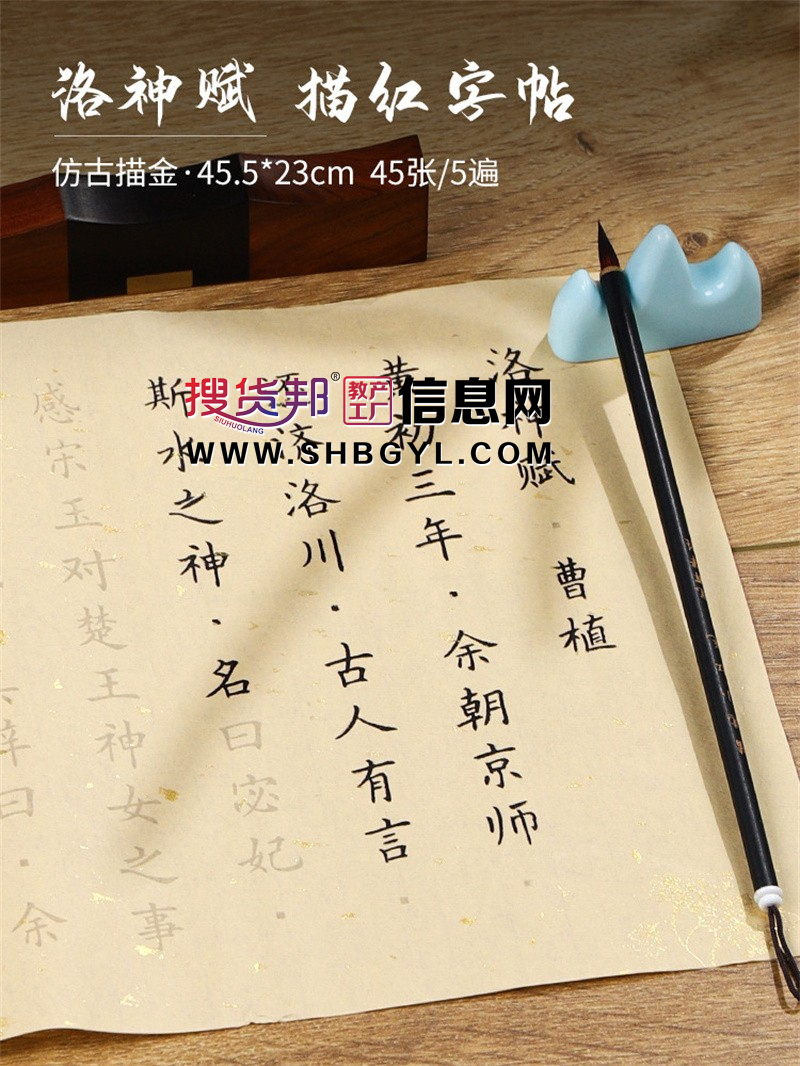 洛神赋 描红字帖
仿古描金·45.5*23cm 45张/5遍
搜货邦® 教产工厂 信息网
SIUHUOLANG
WWW.SHBGYL.COM
洛神赋·曹植
黄初三年·余朝京师
还济洛川·古人有言
斯水之神·名曰宓妃·
感宋玉对楚王神女之事
辞曰·余